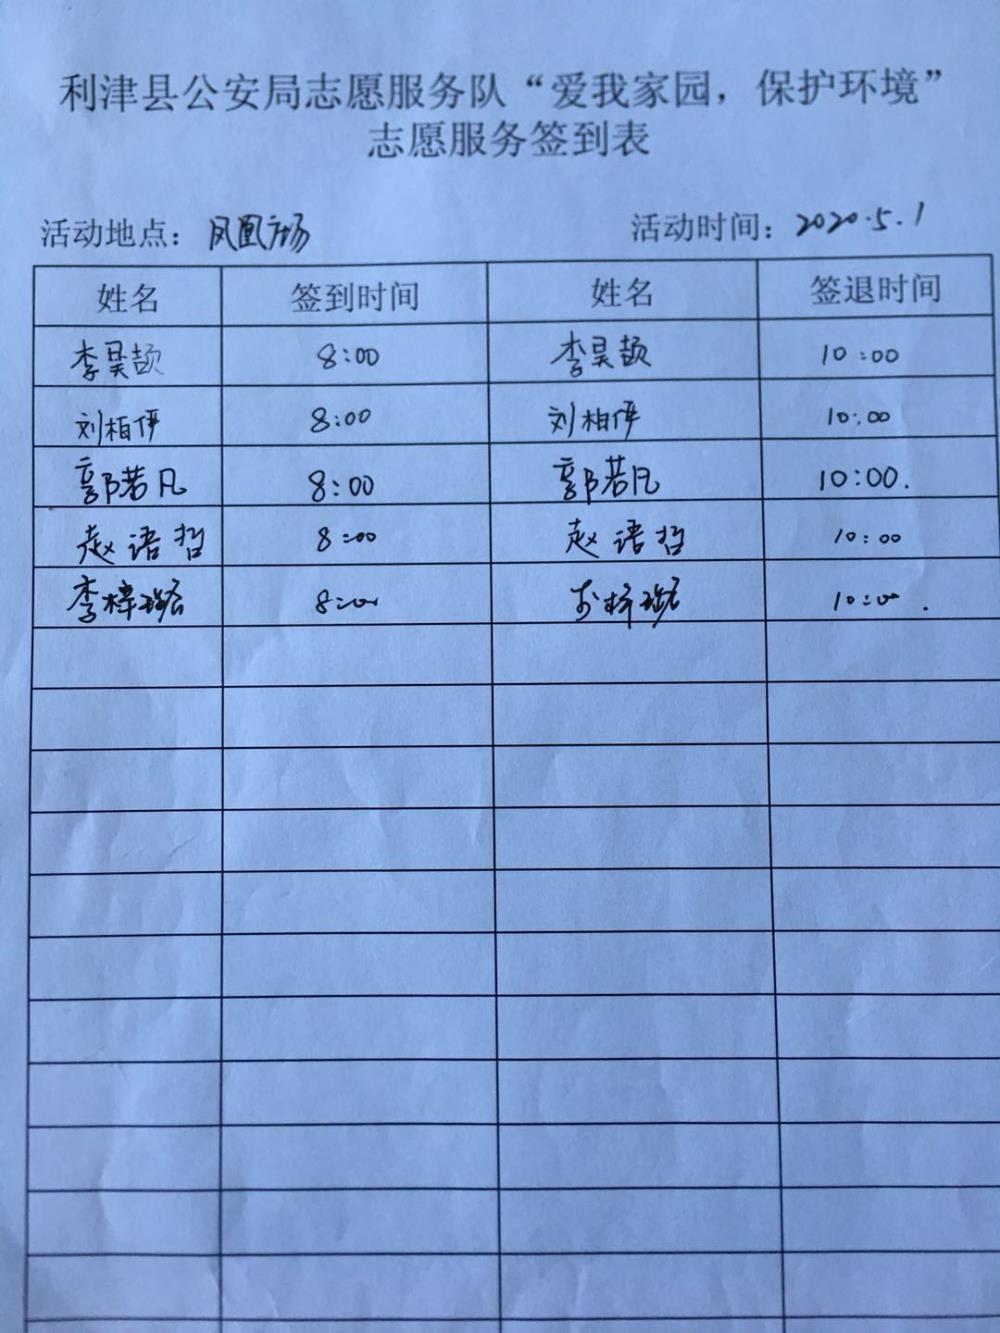 利津县公安局志愿服务队“爱我家园，保护环境”
志愿服务签到表
活动地点：凤凰广场 活动时间：2020.5.1
姓名 签到时间 姓名 签退时间
李昊颉 8:00 李昊颉 10:00
刘柏伊 8:00 刘柏伊 10:00
郭若凡 8:00 郭若凡 10:00.
赵语哲 8:00 赵语哲 10:00
李梓璐 8:00 李梓璐 10:00.